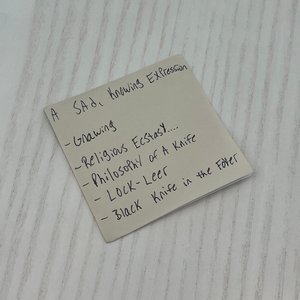 A SAd, Knowing Expression
- Gnawing
- Religious Ecstasy....
- Philosophy of A Knife
- Lock-Leer
- Black Knife in the Foyer